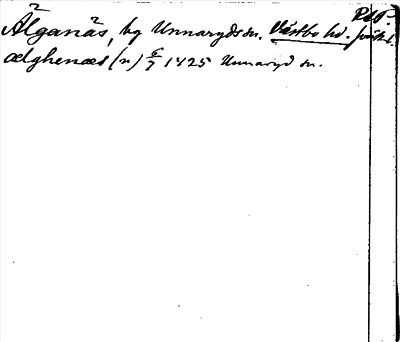 Älganäs, by Unnaryds sn. Västbo hd.
ælghenæs (n) 6/7 1425 Unnaryd sn.